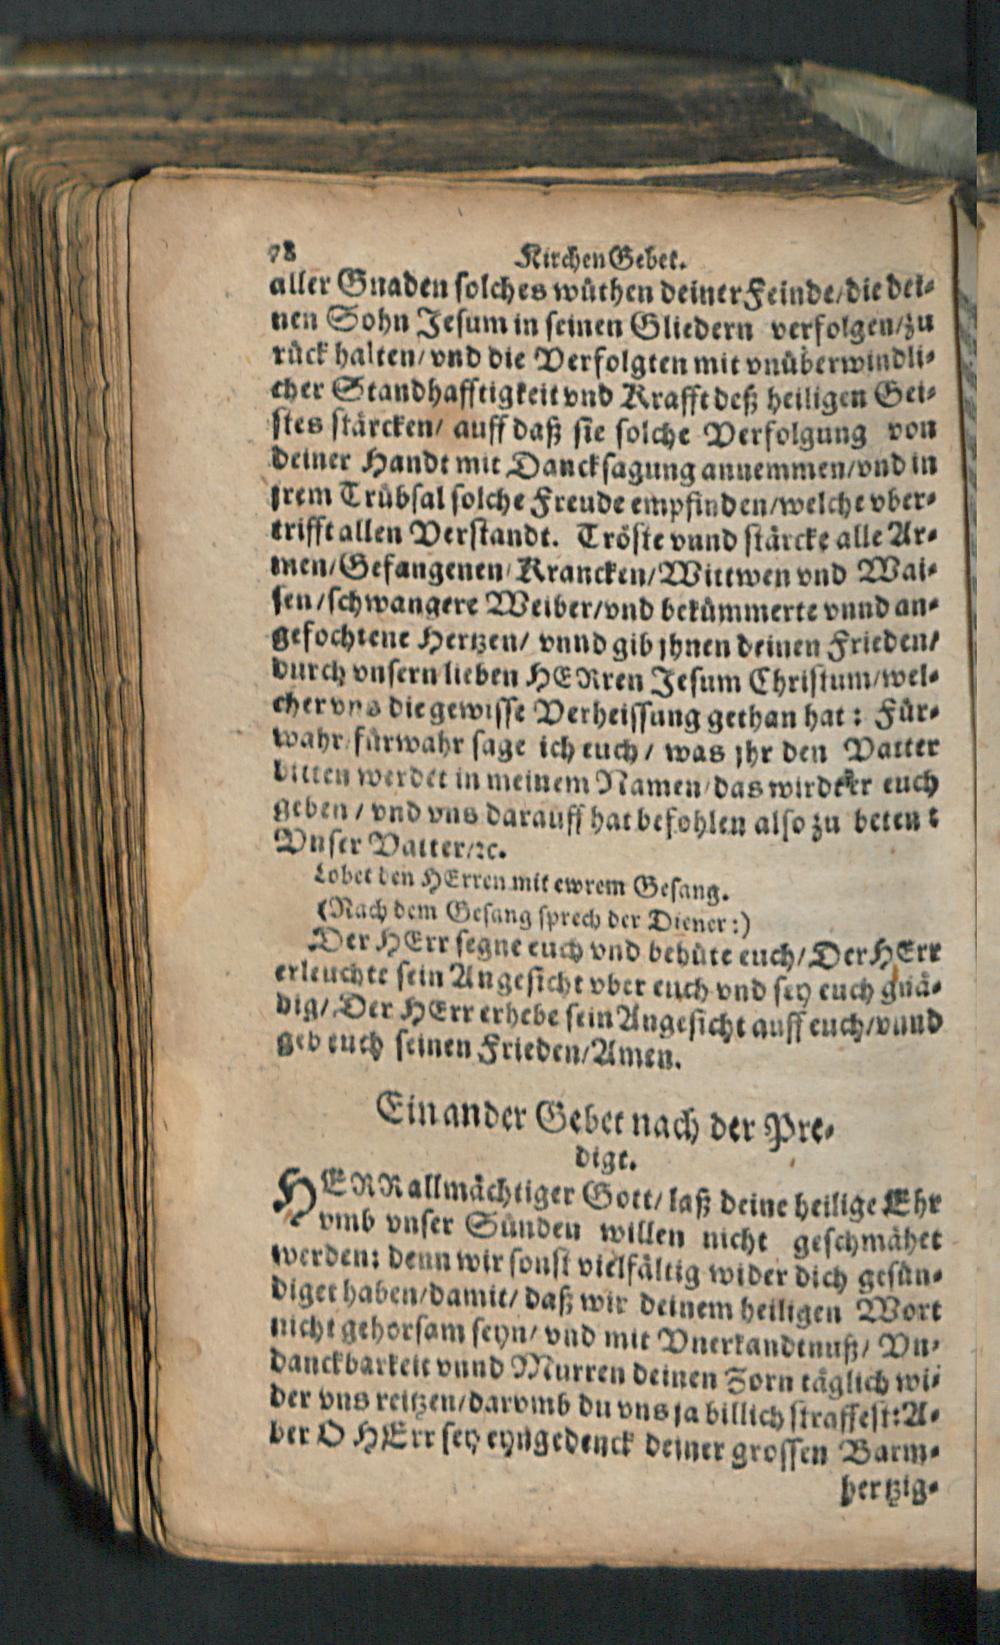 78 Kirchen Gebet.
aller Gnaden solches wüthen deiner Feinde/die dei-
nen Sohn Jesum in seinen Gliedern verfolgen/zu
rück halten/vnd die Verfolgten mit vnüberwindli-
cher Standhafftigkeit vnd Krafft deß heiligen Gei-
stes stärcken/ auff daß sie solche Verfolgung von
deiner Handt mit Dancksagung annemmen/vnd in
jrem Trübsal solche Freude empfinden/welche vber-
trifft allen Verstandt. Tröste vnnd stärcke alle Ar-
men/Gefangenen/Krancken/Wittwen vnd Wai-
sen/schwangere Weiber/vnd bekümmerte vnnd an-
gefochtene Hertzen/ vnnd gib jhnen deinen Frieden/
durch vnsern lieben HERren Jesum Christum/wel-
cher vns die gewisse Verheissung gethan hat: Für-
wahr/fürwahr sage ich euch/ was jhr den Vatter
bitten werdet in meinem Namen/das wirdt er euch
geben/ vnd vns darauff hat befohlen also zu beten:
Vnser Vatter/ꝛc.
Lobet den HErren mit ewrem Gesang.
(Nach dem Gesang sprech der Diener:)
Der HErr segne euch vnd behüte euch/Der HErr
erleuchte sein Angesicht vber euch vnd sey euch gnä-
dig/Der HErr erhebe sein Angesicht auff euch/vnnd
geb euch seinen Frieden/Amen.
Ein ander Gebet nach der Pre-
digt.
HERR allmächtiger Gott/ laß deine heilige Ehr
vmb vnser Sünden willen nicht geschmähet
werden: denn wir sonst vielfältig wider dich gesün-
diget haben/damit/ daß wir deinem heiligen Wort
nicht gehorsam seyn/ vnd mit Vnerkandtnuß/ Vn-
danckbarkeit vnnd Murren deinen Zorn täglich wi-
der vns reitzen/darvmb du vns ja billich straffest: A-
ber O HErr sey eyngedenck deiner grossen Barm-
hertzig-